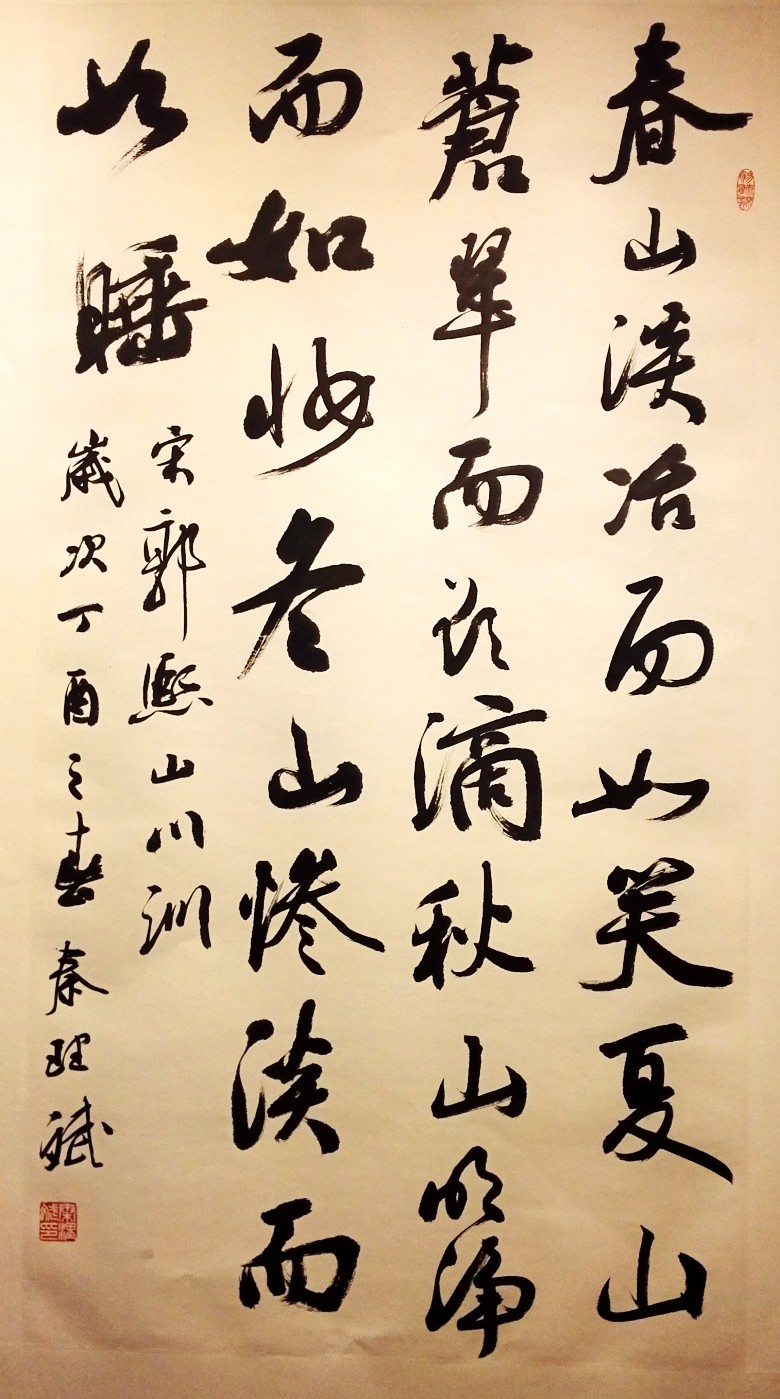 春山淡冶而如笑夏山
蒼翠而欲滴秋山明淨
而如妝冬山慘淡而
如睡
宋郭熙山川訓
歲次丁酉之春秦理斌